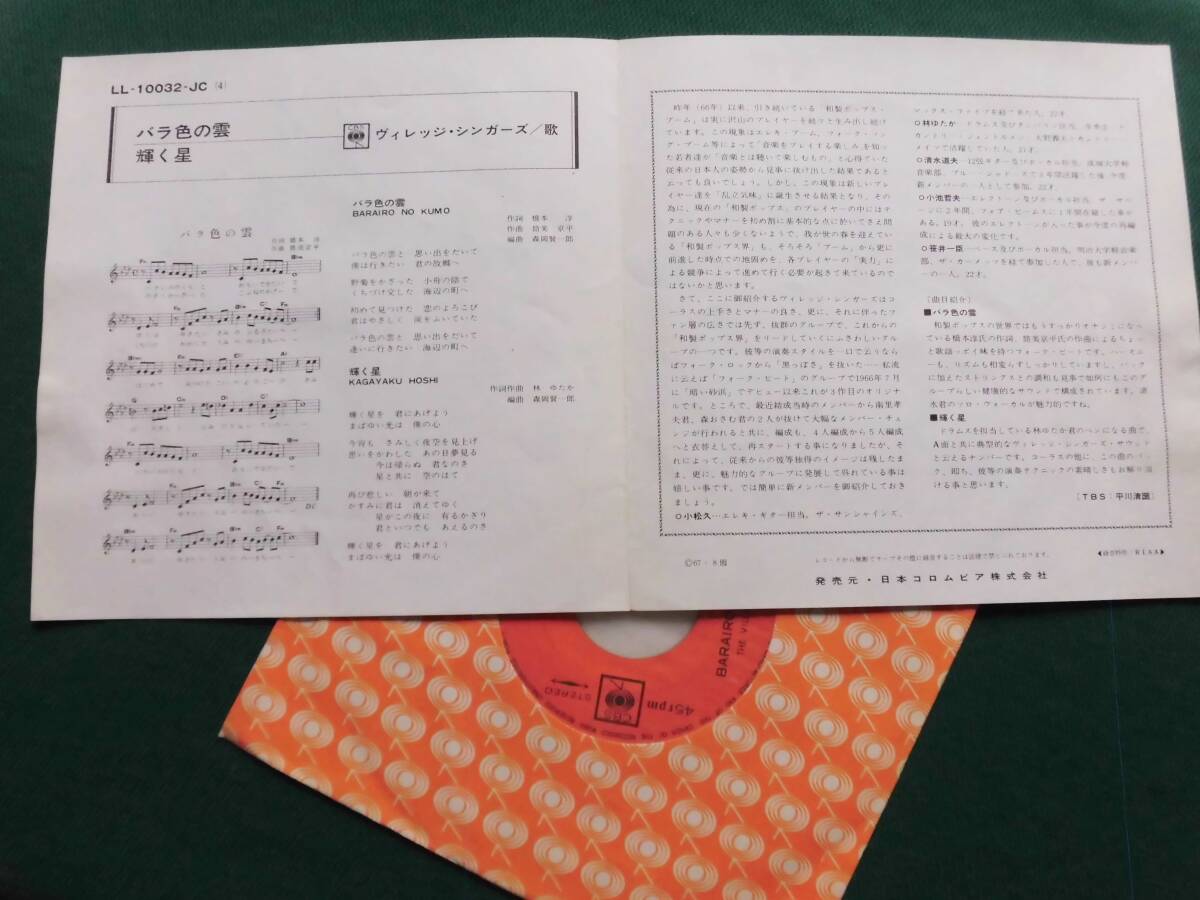 LL-10032-JC (4)
バラ色の雲
輝く星
CBS
ヴィレッジ・シンガーズ/歌
バラ色の雲
作詞 橋本 淳
作曲 筒美京平
バラ色の雲
BARAIRO NO KUMO
作詞 橋本 淳
作曲 筒美 京平
編曲 森岡賢一郎
バラ色の雲と 思い出をだいて
僕は行きたい 君の故郷へ
野菊をかざった 小舟の陰で
くちづけ交した 海辺の町へ
初めて見つけた 恋のよろこび
君はやさしく 涙をふいていた
バラ色の雲と 思い出をだいて
逢いに行きたい 海辺の町へ
輝く星
KAGAYAKU HOSHI
作詞作曲 林 ゆたか
編曲 森岡賢一郎
輝く星を 君にあげよう
まばゆい光は 僕の心
今宵も さみしく夜空を見上げ
思いをかわした あの日夢見る
今は帰らぬ 君なのさ
星と共に 空のはて
再び悲しい 朝が来て
かすみに君は 消えてゆく
星がこの夜に 有るかぎり
君といつでも あえるのさ
輝く星を 君にあげよう
まばゆい光は 僕の心
昨年(66年)以来、引き続いている「和製ポップス・
ブーム」は実に沢山のプレイヤーを続々と生み出し続け
ています。この現象はエレキ・ブーム、フォーク・ソン
グ・ブーム等によって「音楽をプレイする楽しみ」を知っ
た若者達が「音楽とは聴いて楽しむもの」と心得ていた
従来の日本人の姿勢から見事に抜け出した結果であると
云っても良いでしょう。しかし、この現象は新しいプレ
イヤー達を「乱立気味」に誕生させる結果となり、その
為に、現在の「和製ポップス」のプレイヤーの中にはテ
クニックやマナーを初め割に基本的な点に於いてさえ問
題のある人々も少くないようで、我が世の春を迎えてい
る「和製ポップス界」も、そろそろ「ブーム」から更に
前進した時点での地固めを、各プレイヤーの「実力」に
よる競争によって進めて行く必要が起きて来ているので
はないかと思います。
さて、ここに御紹介するヴィレッジ・シンガーズはコ
ーラスの上手さとマナーの良さ、更に、それに伴ったフ
ァン層の広さでは先ず、抜群のグループで、これからの
「和製ポップス界」をリードしていくにふさわしいグル
ープの一つです。彼等の演奏スタイルを一口で云うなら
ばフォーク・ロックから「黒っぽさ」を抜いた……私流
に云えば「フォーク・ビート」のグループで1966年7月
に「暗い砂浜」でデビュー以来これが3作目のオリジナ
ルです。ところで、最近結成当時のメンバーから南里孝
夫君、森おさむ君の2人が抜けて大幅なメンバー・チェ
ンジが行われると共に、編成も、4人編成から5人編成
へと衣替えして、再スタートする事になりましたが、そ
れによって、従来からの彼等独得のイメージは残したま
ま、更に、魅力的なグループに発展して呉れている事は
嬉しい事です。では簡単に新メンバーを御紹介しておき
ましょう。
○小松久――エレキ・ギター担当。ザ・サンシャインズ、
マックス・ファイブを経て来た人。22才。
○林ゆたか――ドラムス及び
メイツで活躍していた人。21才。
○清水道夫――12弦ギター及びボーカル担当。成城大学軽
音楽部、ブルー・シャドーズで3年間活躍した後 今度
新メンバーの一人として参加。22才。
○小池哲夫――エレクトーン及びボーカル担当。ザ・サベ
ージに2年間、フォア・ビームスに1年間在籍した事が
ある。19才。彼のエレクトーンが入った事が今度の再編
成による最大の変化です。
○笹井一臣――ベース及びボーカル担当。明治大学軽音楽
部、ザ・カーメッツを経て参加した人で、彼も新メンバ
ーの一人。22才。
[曲目紹介]
■バラ色の雲
和製ポップスの世界ではもうすっかりオナジミになっ
ている橋本淳氏の作詞、筒美京平氏の作曲によるちょっ
と歌謡っポイ味を持つフォーク・ビートです。ハーモニ
ーも、リズムも相変らずしっかりしていますし、バック
に加えたストリングスとの調和も見事で如何にもこのグ
ループらしい健康的なサウンドで構成されています。清
水君のソロ・ヴォーカルが魅力的ですね。
■輝く星
ドラムスを担当している林ゆたか君のペンになる曲で、
A面と共に典型的なヴィレッジ・シンガーズ・サウンド
と云えるナンバーです。コーラスの他に、この曲のバッ
ク、即ち、彼等の演奏テクニックの素晴しさもお解り頂
ける事と思います。
[TBS:平川清圀]
レコードから無断でテープその他に録音することは法律で禁じられております。
◀録音特性/RIAA▶
Ⓒ67・8
発売元・日本コロムビア株式会社
BARAIRO
THE VIL
STEREO
CBS
45rpm